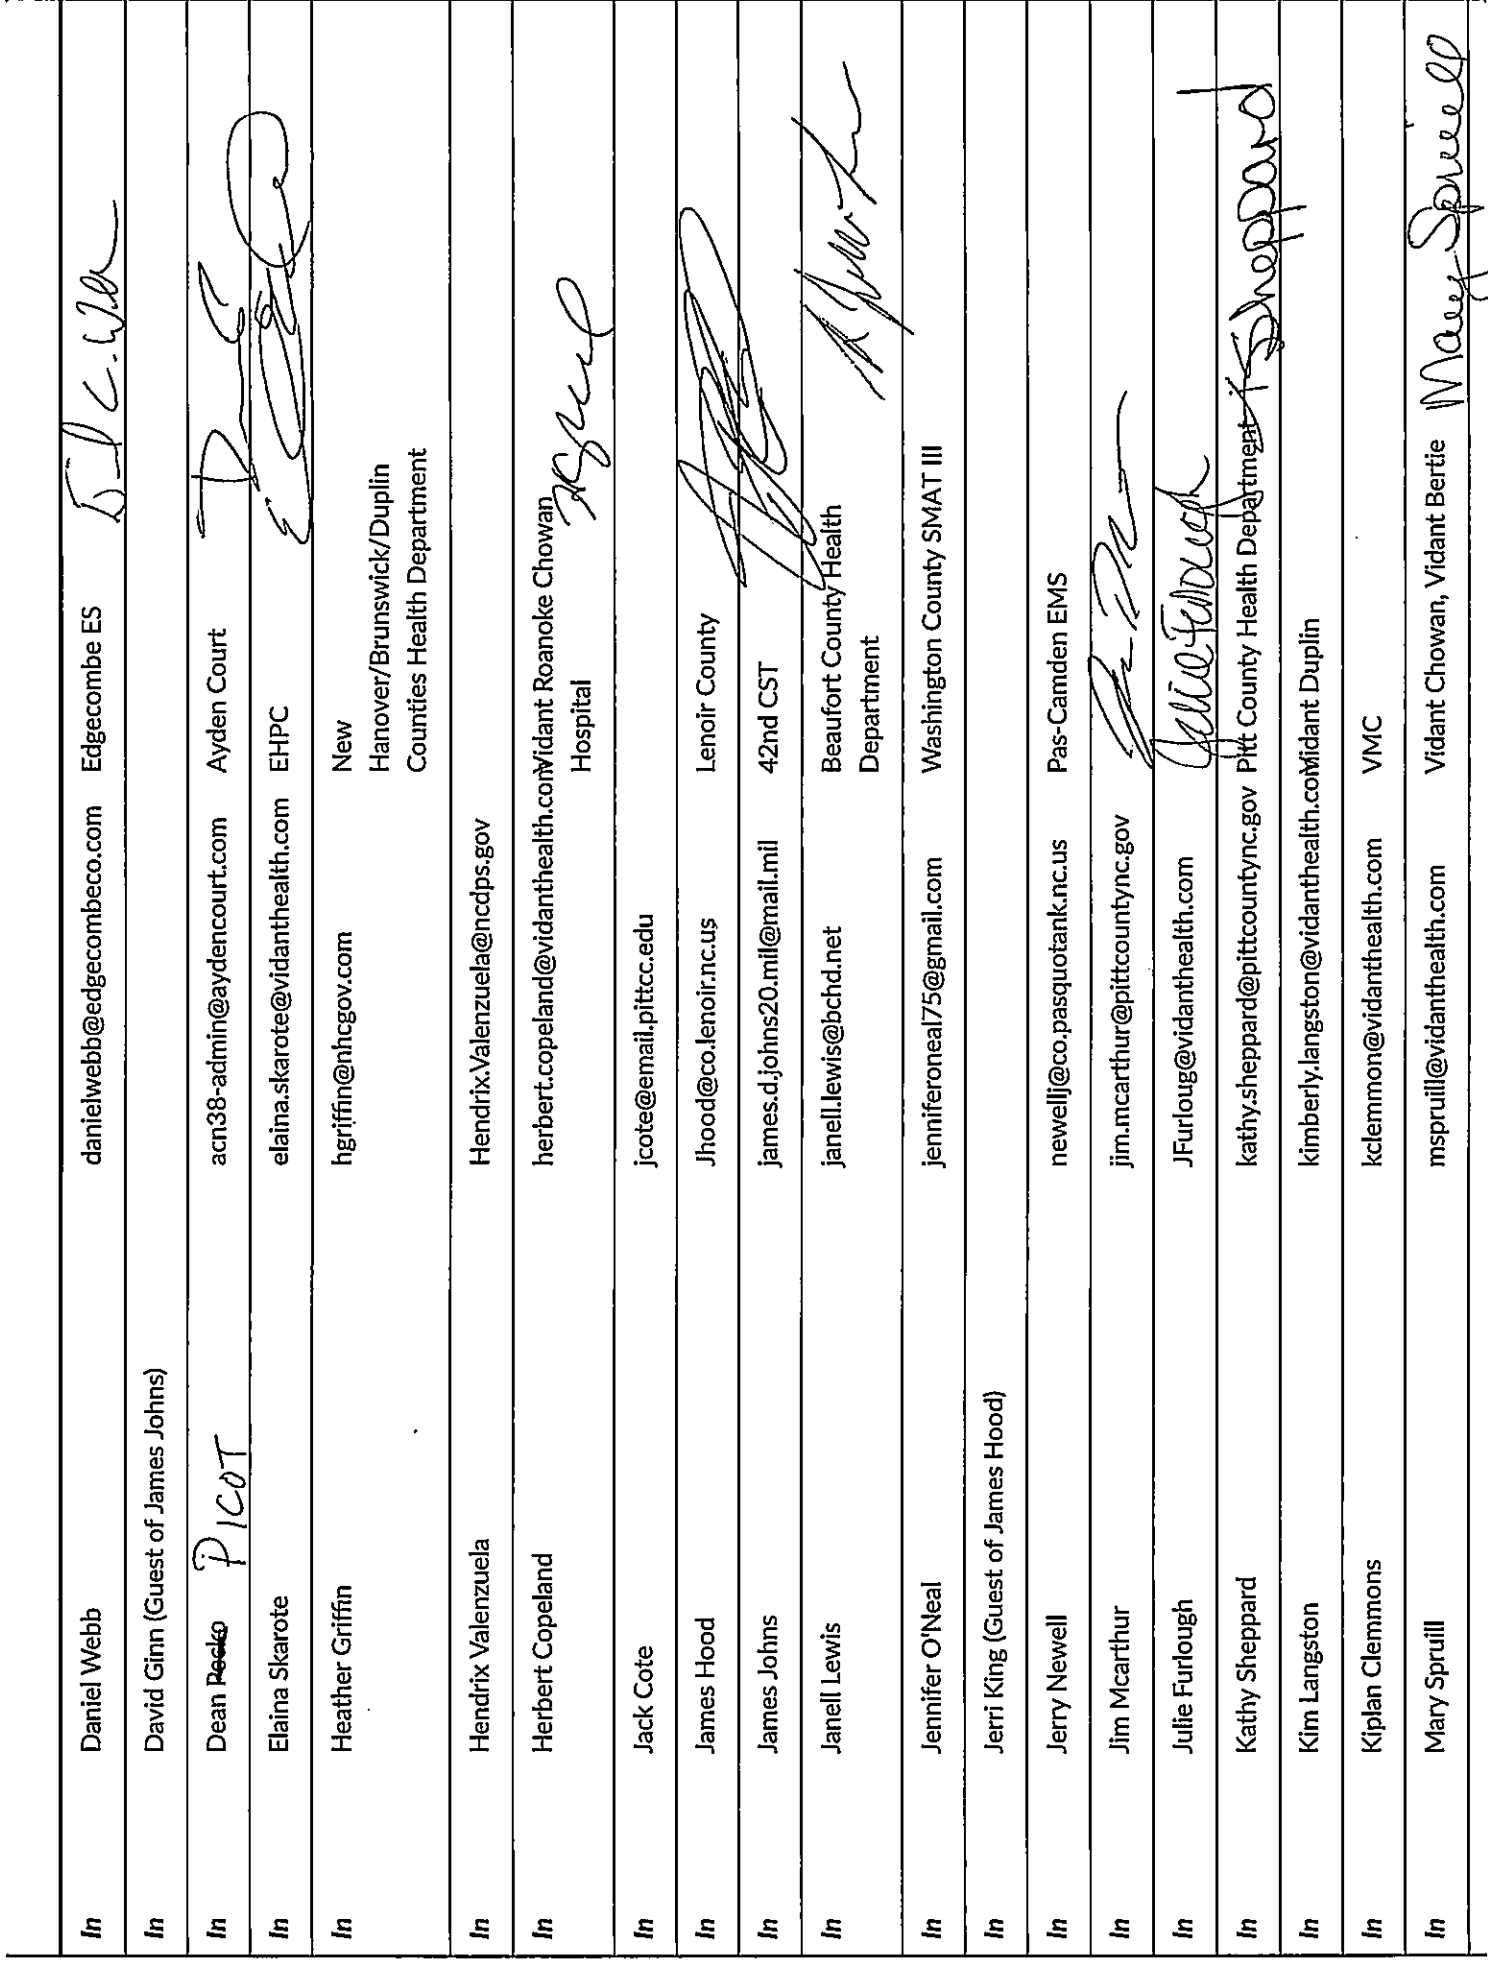 In Daniel Webb danielwebb@edgecombeco.com Edgecombe ES
In David Ginn (Guest of James Johns)
In Dean PICOT acn38-admin@aydencourt.com Ayden Court
In Elaina Skarote elaina.skarote@vidanthealth.com EHPC
In Heather Griffin hgriffin@nhcgov.com New
Hanover/Brunswick/Duplin
Counties Health Department
In Hendrix Valenzuela Hendrix.Valenzuela@ncdps.gov
In Herbert Copeland herbert.copeland@vidanthealth.com Vidant Roanoke Chowan
Hospital
In Jack Cote jcote@email.pittcc.edu
In James Hood Jhood@co.lenoir.nc.us Lenoir County
In James Johns james.d.johns20.mil@mail.mil 42nd CST
In Janell Lewis janell.lewis@bchd.net Beaufort County Health
Department
In Jennifer O'Neal jenniferoneal75@gmail.com Washington County SMAT III
In Jerri King (Guest of James Hood)
In Jerry Newell newellj@co.pasquotank.nc.us Pas-Camden EMS
In Jim Mcarthur jim.mcarthur@pittcountync.gov
In Julie Furlough JFurloug@vidanthealth.com Julie Furlough
In Kathy Sheppard kathy.sheppard@pittcountync.gov Pitt County Health Department KSheppard
In Kim Langston kimberly.langston@vidanthealth.com Vidant Duplin
In Kiplan Clemmons kclemmon@vidanthealth.com VMC
In Mary Spruill mspruill@vidanthealth.com Vidant Chowan, Vidant Bertie Mary Spruill